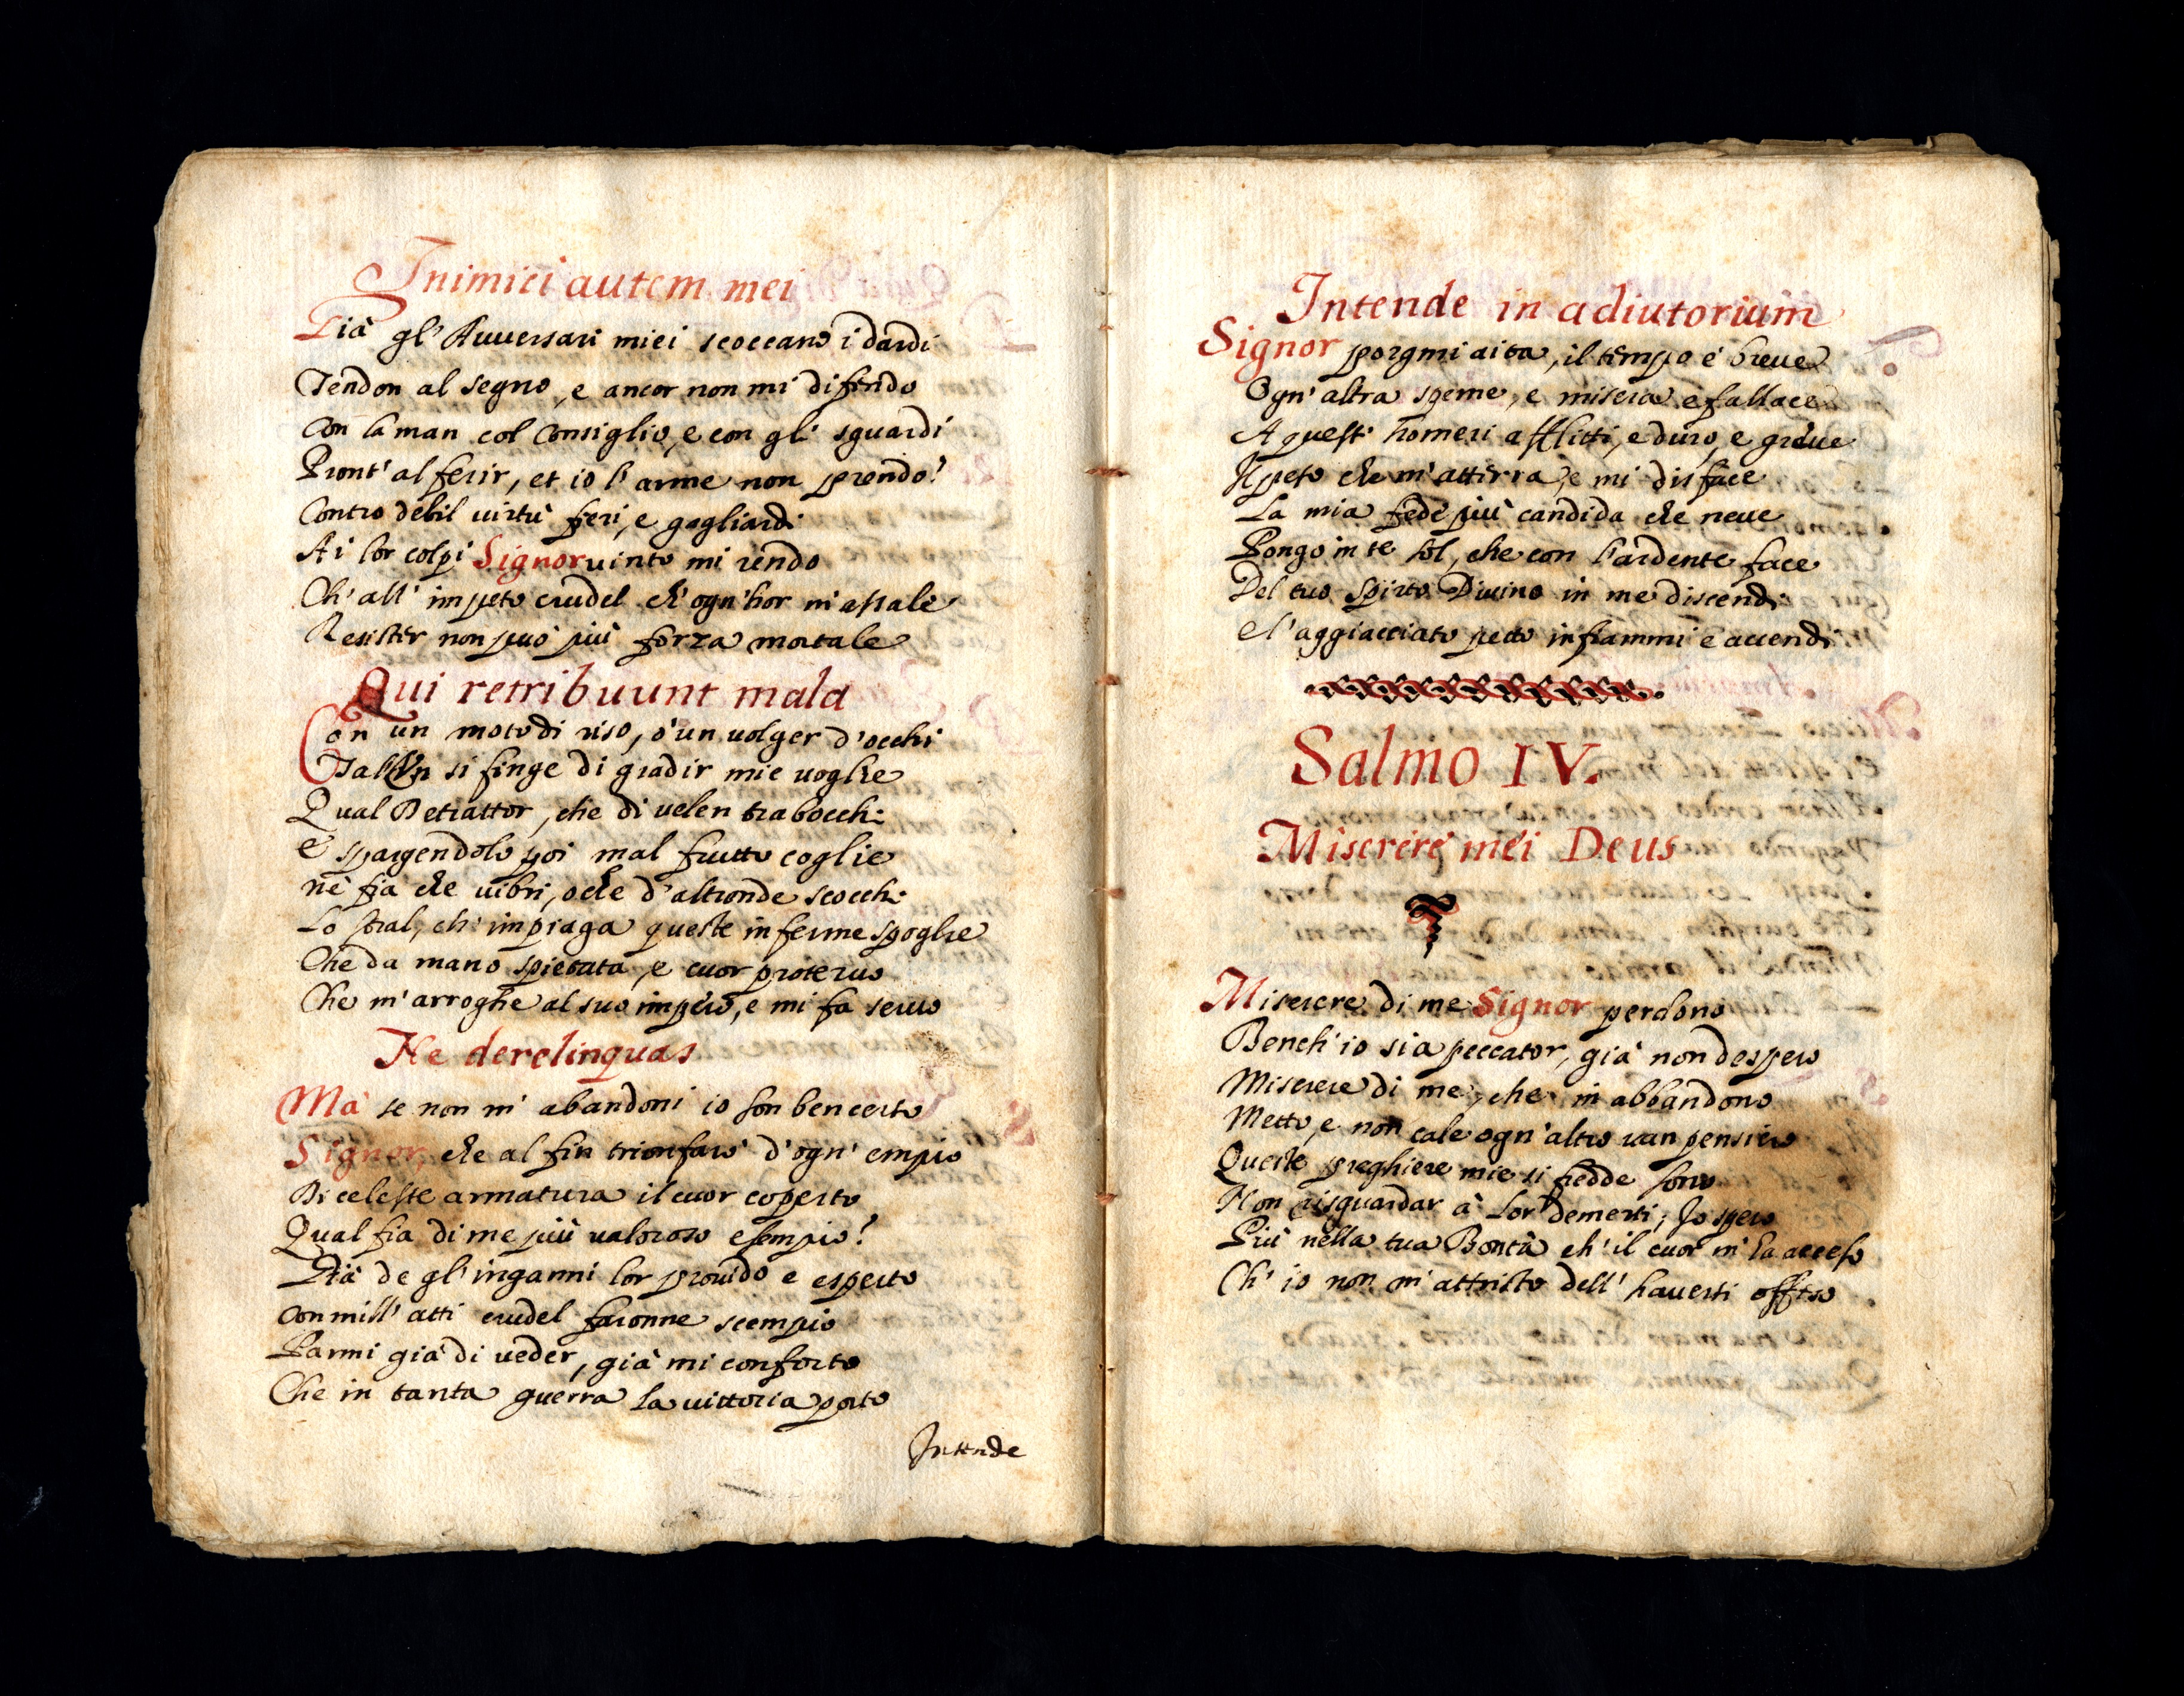 Inimici autem mei
Già gl' Auuersari miei scoccano i dardi
Tendon al segno, e ancor non mi difendo
Con la man col Consiglio, e con gli sguardi
Pront' al ferir, et io l' arme non prendo?
Contro debil uirtù feri, e gagliardi
Ai lor colpi Signor uinto mi rendo
Ch' all' impeto crudel ch' ogn' hor m' assale
Resister non può più forza mortale
Qui retribuunt mala
Con un moto di riso, ò un uolger d' occhi
Talun si finge di gradir mie uoglie
Qual Detrattor, che di uelen trabocchi
E spargendolo poi mal frutto coglie
nè fia che uibri, o che d' altronde scocchi
Lo stral, ch' impiaga queste inferme spoglie
Che da mano spietata, e cuor proteruo
Che m' arroghe al suo impero, e mi fa seruo
Ne derelinquas
Mà se non m' abandoni io son ben certo
Signor, che al fin trionfarò d' ogn' empio
Di celeste armatura il cuor coperto
Qual fia di me più ualoroso esempio?
Già de gl' inganni lor prouido e esperto
Con mill' atti crudel faronne scempio
Parmi già di ueder, già mi conforto
Che in tanta guerra la uittoria porto
Intende
Intende in adiutorium
Signor porgmi aita, il tempo è breue
Ogn' altra speme, e misera e fallace
A questi homeri afflitti, e duro, e greue
Il peso che m' atterra, e mi disface
La mia fede più candida che neue
Pongo in te sol, che con l' ardente face
Del tuo spirto Diuino in me discendi
E l' aggiacciato petto infiammi e accendi
Salmo IV.
Miserere mei Deus
Miserere di me Signor perdono
Bench' io sia peccator, già non despero
Miserere di me, che in abbandono
Metto, e non cale ogn' altro uan pensiero
Queste preghiere mie si fredde sono
Non risguardar à lor demerti; Io spero
Più nella tua Bontà ch' il cuor m' ha acceso
Ch' io non m' attristo dell' hauerti offeso